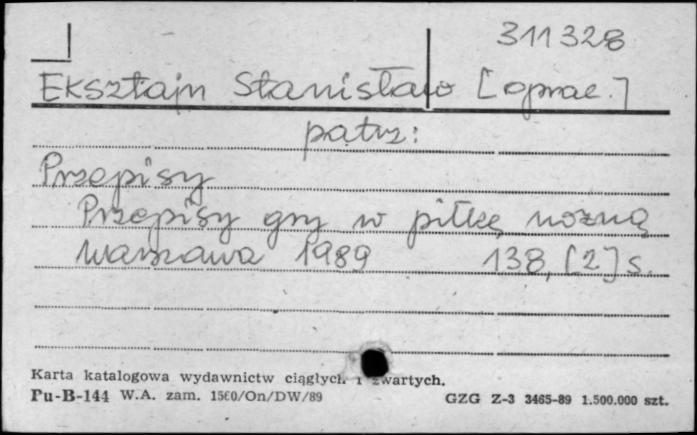 311328
Eksztajn Stanisław [oprac.]
patrz:
Przepisy
Przepisy gry w piłkę nożną
Warszawa 1989 138, [2] s.
Karta katalogowa wydawnictw ciągłych i zwartych.
Pu-B-144 W.A. zam. 1560/On/DW/89 GZG Z-3 3465-89 1.500.000 szt.